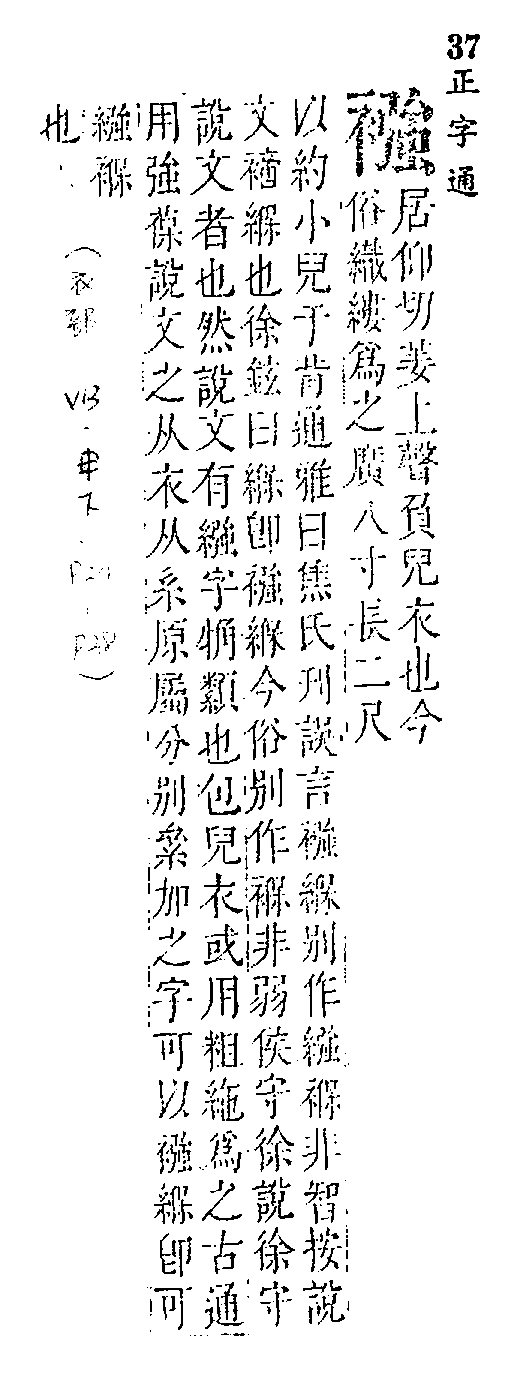 37 正字通
襁 居仰切姜上聲負兒衣也今
俗織縷爲之廣八寸長二尺
以約小兒于背通雅曰焦氏刋誤言襁緥別作繈褓非智按說
文緥也徐鉉曰緥卽襁緥今俗別作褓非弱侯守徐說徐守
說文者也然說文有繈字觕纇也包兒衣或用粗絁爲之古通
用強葆說文之从衣从糸原屬分別絫加之字可以襁緥卽可
繈褓
也
(衣部